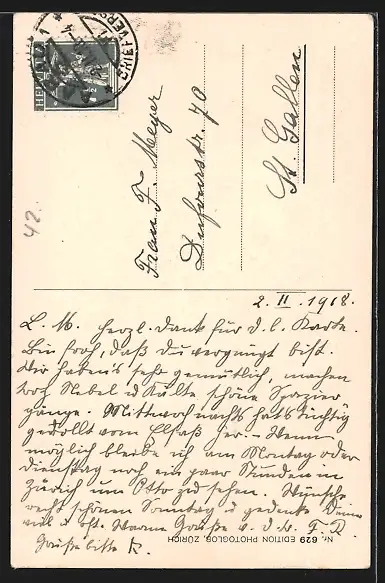 Frau F. Meyer
Dufourstr. 70
St. Gallen
42.
2. II. 1918.
L. M. Herzl. Dank für d. l. Karte.
Bin froh, daß du vergnügt bist.
Wir haben's sehr gemütlich, machen
trotz Nebel u Kälte schöne Spazier
gänge. Mittwoch nachts hat's tüchtig
gedollt vom Elsaß her. – Wenn
möglich bleibe ich am Montag oder
Dienstag noch ein paar Stunden in
Zürich um Otto zu sehen. Wünsche
recht schönen Sonntag u gedenke Deiner
viel u Warme Grüße v. d. F. R.
Grüße bitte R.
Nr. 629 EDITION PHOTOGLOB, ZÜRICH
HELVETIA
7½